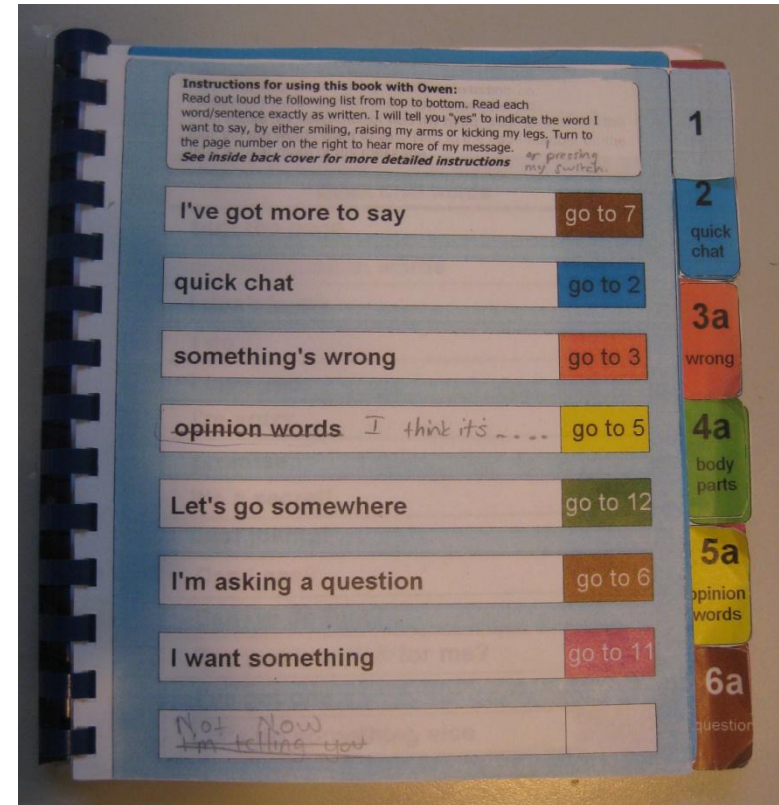 Instructions for using this book with Owen:
Read out loud the following list from top to bottom. Read each
word/sentence exactly as written. I will tell you "yes" to indicate the word I
want to say, by either smiling, raising my arms or kicking my legs. Turn to
the page number on the right to hear more of my message.
or pressing
my switch.
See inside back cover for more detailed instructions
I've got more to say go to 7
quick chat go to 2
something's wrong go to 3
opinion words I think it's .... go to 5
Let's go somewhere go to 12
I'm asking a question go to 6
I want something go to 11
Not Now
I'm telling you
1
2
quick
chat
3a
wrong
4a
body
parts
5a
opinion
words
6a
question